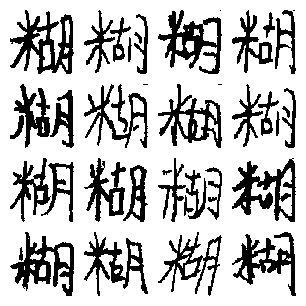 糊糊糊糊
糊糊糊糊
糊糊糊糊
糊糊糊糊